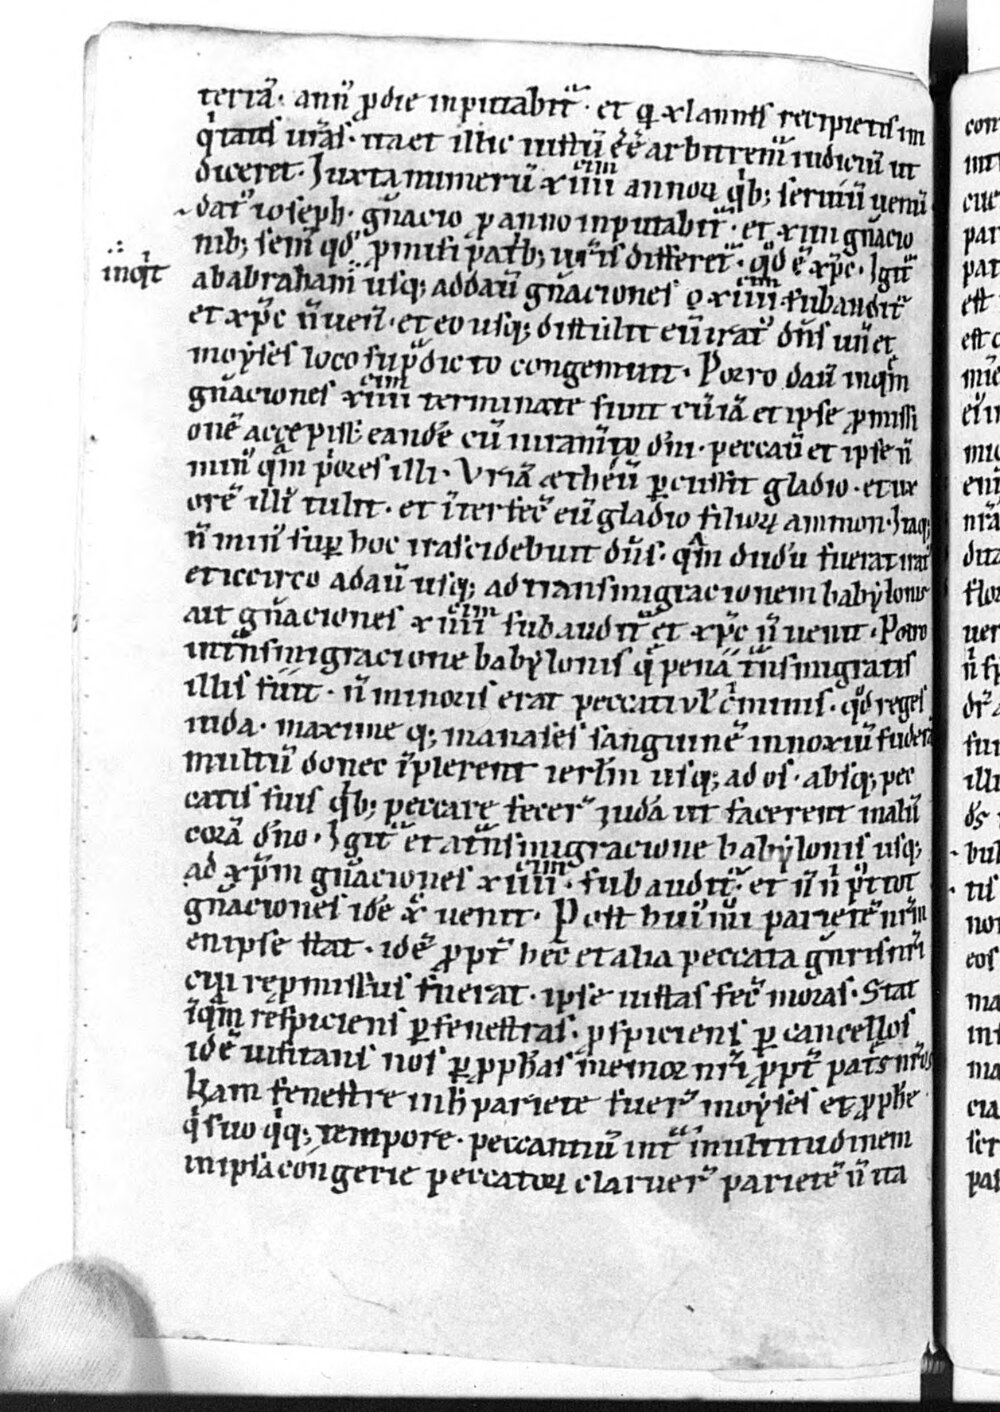 terrā· ann̄ ꝓ die inputabit᷑· et q̇ xl annis recipietis ini
q̇tatis ur̄as· ita et illic iustū eē arbitrem᷑ iudiciū ut
diceret· Juxta numerū xiiii cim annoꝝ q̇b; seruiū uenū
dat᷑ ioseph· gn̄acio ꝓ anno inputabit᷑· et xiiii gn̄acio
nib; sem̄ qd̄ ꝓmisi patrib; ur̄is differet᷑· qd̄ ē xp̄c· Igit᷑
∴ inqͥt
ab abraham usq; ad dauḋ gn̄aciones xiiii cim subaudit᷑
et xp̄c n̄ uenit· et eo usq; distulit eū irat᷑ dn̄s un̄ et
moyses loco sup̄dicto congemuit· Porro dauḋ inqm̄
gn̄aciones xiiii cim terminate sunt cū iā et ipse ꝓmissi
onē accepisset eandē cū iuramto dn̄i· peccauit et ipse n̄
min᷑ qm̄ p̄ores illi· Uriā ætheū ꝑcussit gladio· et ux
orē illi᷑ tulit· et īterfec̄ eū gladio filioꝝ ammon· Itaq;
n̄ min᷑ suꝑ hoc irasci debuit dn̄s· qm̄ dudū fuerat irat᷑
et iccirco a dauḋ usq; ad transmigracionem babylonis
ait gn̄aciones xiiii cim subaudit᷑ et xp̄c n̄ uenit· Porro
in tn̄smigracione babylonis q̇ pena tn̄smigratis
illis fuit· n̄ minoris erat peccati ul̄ c̍minis· qd̄ reges
iuda· maxime q; manases sanguinē innoxiū fuder̄
multū donec īplerent ierlm̄ usq; ad os· absq; pec
catis suis q̇b; peccare fecer᷑ iudā ut facerent malū
corā dn̄o· Igit᷑ et a tn̄smigracione babylonis usq;
ad xp̄m gn̄aciones xiiii cim· subaudit᷑· et n̄ p̄t tot
gn̄aciones idē xp̄c uenit· Post hui᷑ parietē nr̄m
en ipse stat· idē ꝓpt̄ hec et alia peccata gn̄ris nr̄i
cui reꝓmissus fuerat· ipse iustas fec̄ moras· Stat
inqm̄ respiciens ꝑ fenestras· ꝓspiciens ꝑ cancellos
idē uisitans nos ꝑ ꝓphas memor nr̄i ꝓpt̄ pat̄s nr̄os
Nam fenestre in h̄ pariete fuer᷑ moyses et ꝓphe
q̇ suo q̇q; tempore· peccantiū int᷑ multitudinem
in ipsa congerie peccatoꝝ claruer᷑ parietē n̄ ita